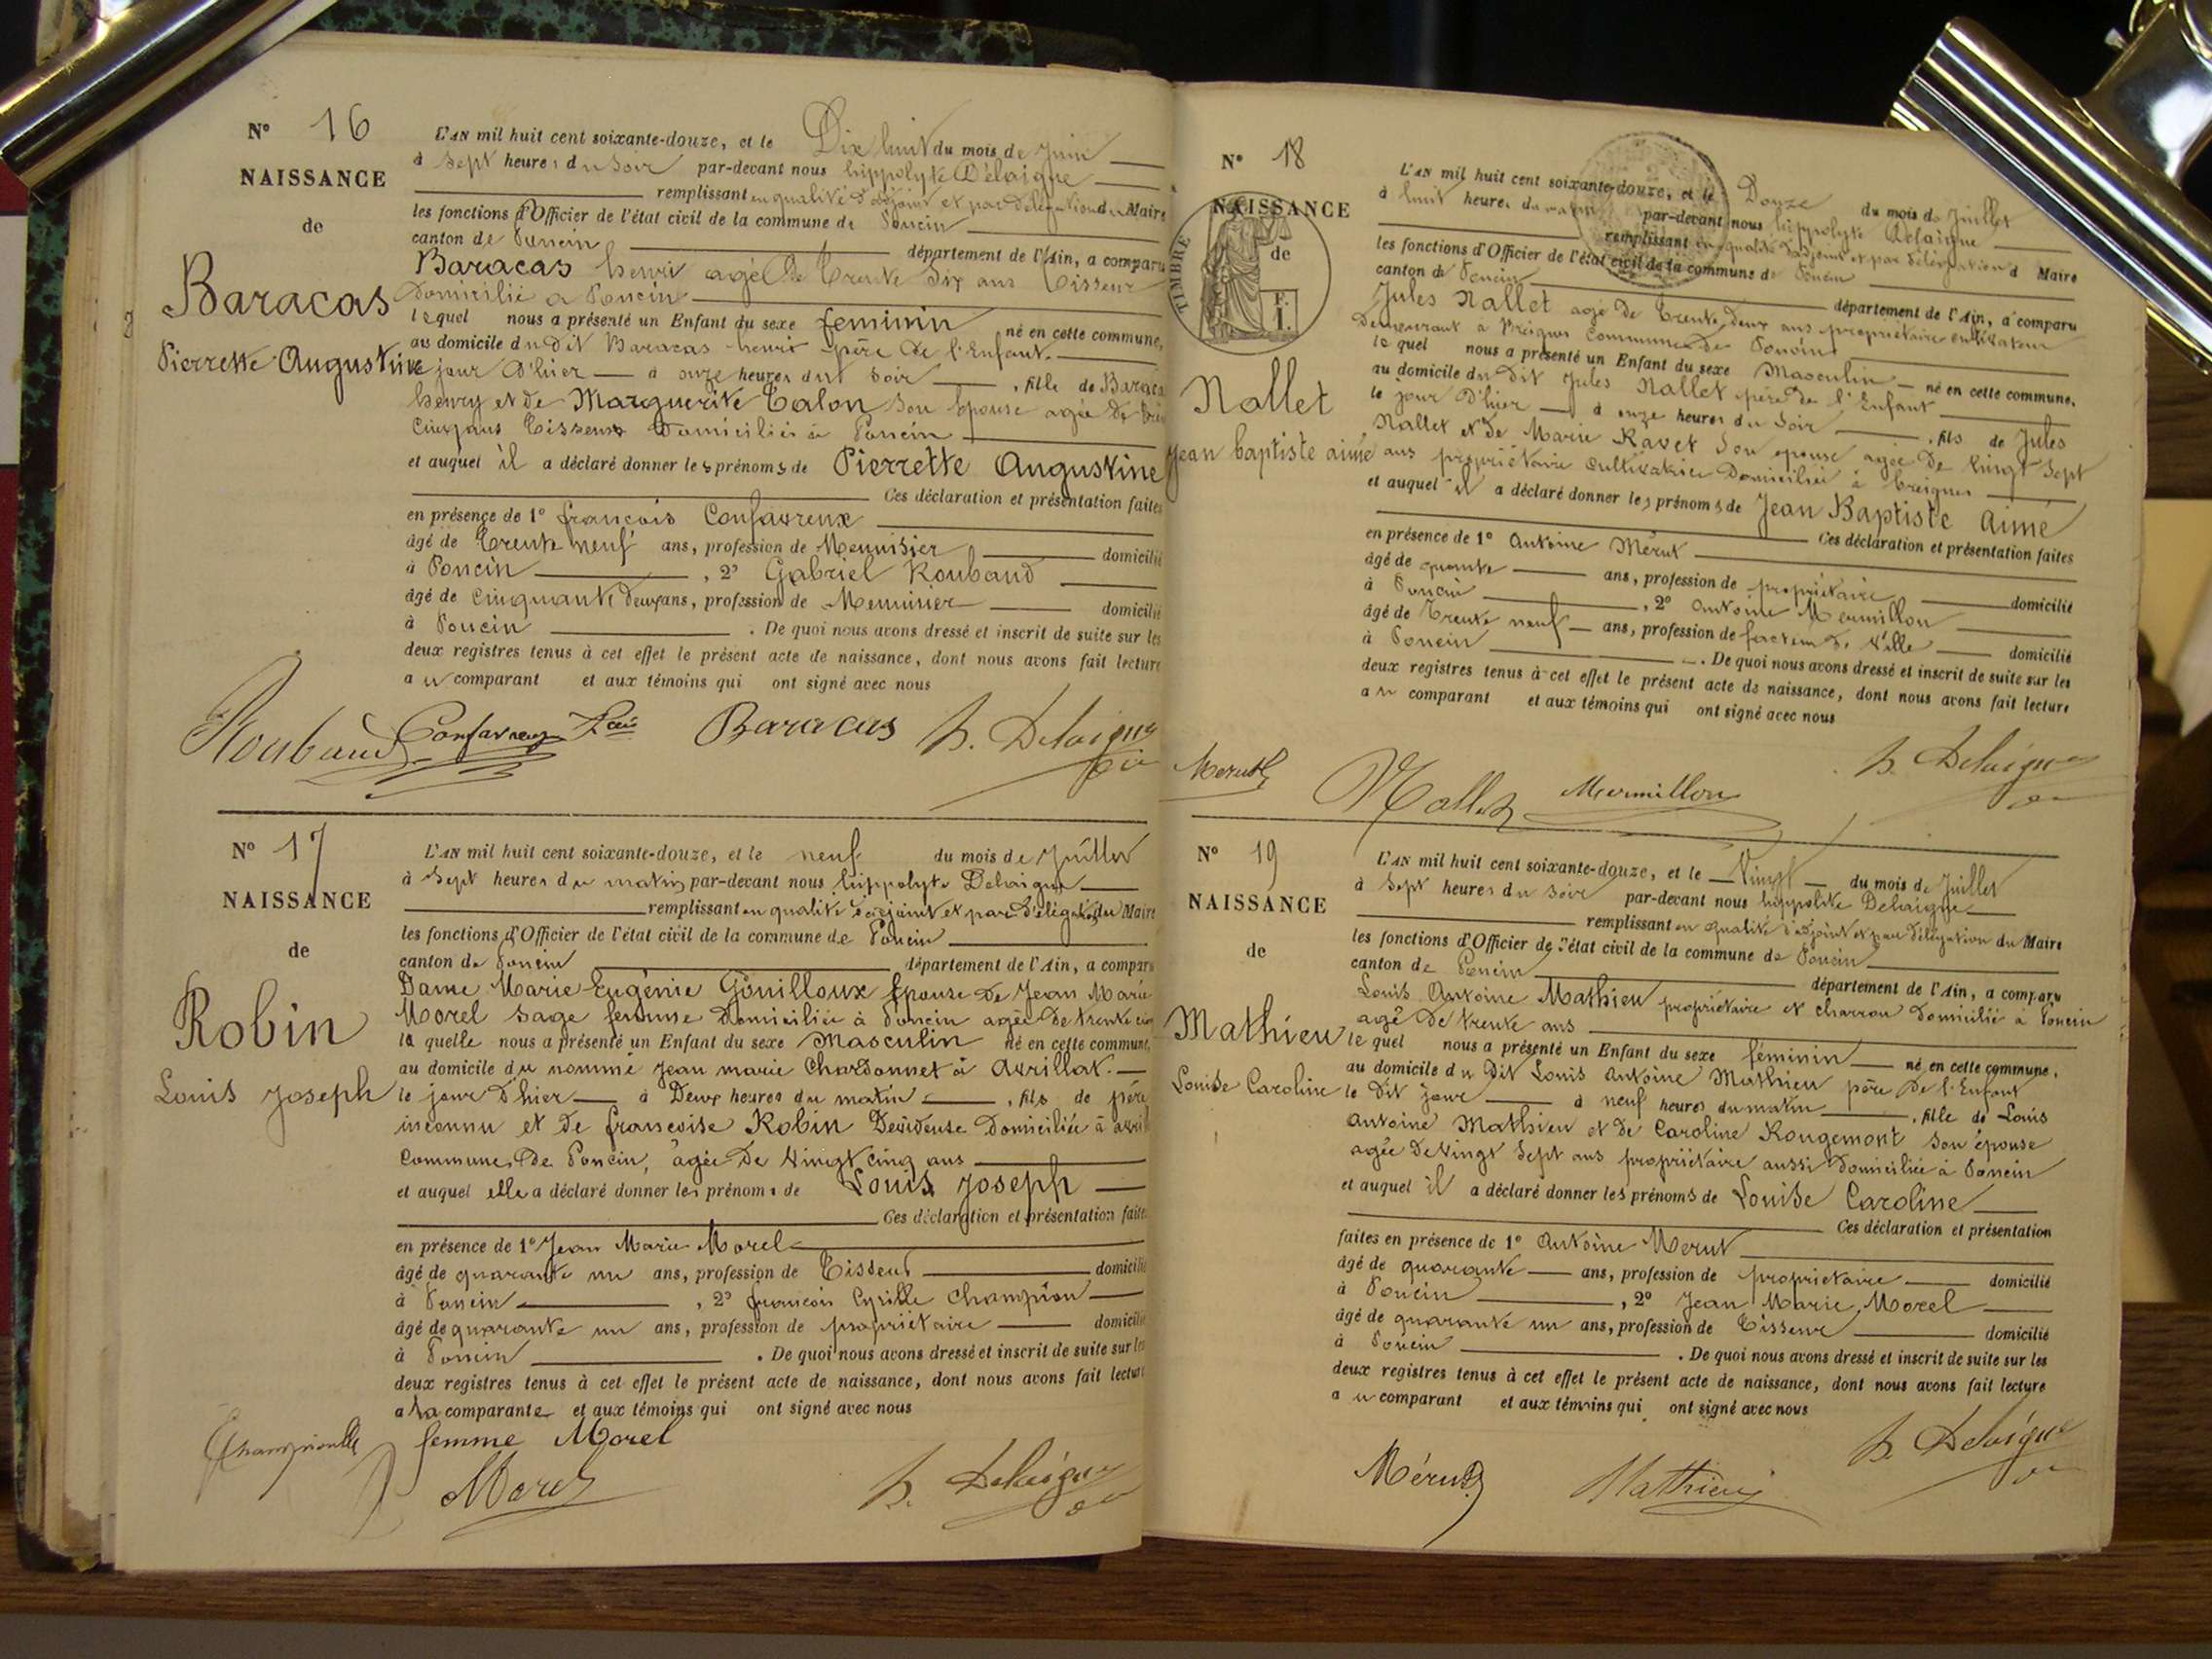 N° 16
NAISSANCE
de
Baracas
Pierrette Augustine
L'AN mil huit cent soixante-douze, et le Dix huit du mois de Juin
à Sept heures du Soir par-devant nous hippolyte Delaigue
remplissant en qualité d'adjoint et par délégation du Maire
les fonctions d'Officier de l'état civil de la commune de Poncin
canton de Poncin département de l'Ain, a comparu
Baracas henri agé De Trente Six ans Tisseur
Domicilié a Poncin
lequel nous a présenté un Enfant du sexe feminin né en cette commune,
au domicile du Dit Baracas henri père De l'Enfant
le jour D'hier à onze heures du Soir, fille de Baracas
henry et de Marguerite Talon Son Epouse agée De
Cinq ans Tisseur Domiciliée à Poncin
et auquel il a déclaré donner les prénoms de Pierrette Augustine
Ces déclaration et présentation faites
en présence de 1° françois Confavreux
âgé de Trente neuf ans, profession de Menuisier domicilié
à Poncin, 2° Gabriel Roubaud
âgé de Cinquante Deux ans, profession de Menuisier domicilié
à Poncin. De quoi nous avons dressé et inscrit de suite sur les
deux registres tenus à cet effet le présent acte de naissance, dont nous avons fait lecture
au comparant et aux témoins qui ont signé avec nous
Roubaud Confavreux Baracas h. Delaigue
N° 17
NAISSANCE
de
Robin
Louis Joseph
L'AN mil huit cent soixante-douze, et le neuf du mois de Juillet
à Sept heures du matin par-devant nous hippolyte Delaigue
remplissant en qualité d'adjoint et par Délégation du Maire
les fonctions d'Officier de l'état civil de la commune de Poncin
canton de Poncin département de l'Ain, a comparu
Dame Marie Eugénie Gouilloux Epouse De Jean Marie
Morel Sage femme Domiciliée à Poncin agée De trente cinq
la quelle nous a présenté un Enfant du sexe Masculin né en cette commune,
au domicile du nommé Jean marie Chardonnet à Avrillat.
le jour D'hier à Deux heures du matin, fils de père
inconnu et de francoise Robin Devideuse Domiciliée à
Commune De Poncin, âgée De Vingt Cinq ans
et auquel elle a déclaré donner les prénoms de Louis Joseph
Ces déclaration et présentation faites
en présence de 1° Jean Marie Morel
âgé de quarante un ans, profession de Tisseur domicilié
à Poncin, 2° françois Cyrille Champion
âgé de quarante un ans, profession de propriétaire domicilié
à Poncin. De quoi nous avons dressé et inscrit de suite sur les
deux registres tenus à cet effet le présent acte de naissance, dont nous avons fait lecture
a la comparante et aux témoins qui ont signé avec nous
femme Morel
Morel h. Delaigue
N° 18
NAISSANCE
de
TIMBRE
F. 1.
Nallet
Jean baptiste aimé
L'AN mil huit cent soixante-douze, et le Douze du mois de Juillet
à huit heures du matin par-devant nous hippolyte Delaigue
remplissant en qualité d'adjoint et par Délégation d Maire
les fonctions d'Officier de l'état civil de la commune de Poncin
canton de Poncin département de l'Ain, a comparu
Jules Nallet agé De Trente Deux ans propriétaire cultivateur
Demeurant à Breignes Commune De Poncin
le quel nous a présenté un Enfant du sexe Masculin né en cette commune.
au domicile du Dit Jules Nallet père De l'Enfant
le jour D'hier à onze heures du Soir, fils de Jules
Nallet et de Marie Ravet Son epouse agée De Vingt Sept
ans propriétaire cultivatrice Domiciliée à breignes
et auquel il a déclaré donner les prénoms de Jean Baptiste aimé
Ces déclaration et présentation faites
en présence de 1° Antoine Mérut
âgé de quarante ans, profession de propriétaire domicilié
à Poncin, 2° antoine Mermillon
âgé de Trente neuf ans, profession de facteur De Ville domicilié
à Poncin. De quoi nous avons dressé et inscrit de suite sur les
deux registres tenus à cet effet le présent acte de naissance, dont nous avons fait lecture
au comparant et aux témoins qui ont signé avec nous
Merut Nallet Mermillon h. Delaigue
N° 19
NAISSANCE
de
Mathieu
Louise Caroline
L'AN mil huit cent soixante-douze, et le Vingt du mois de Juillet
à Sept heures du Soir par-devant nous hippolyte Delaigue
remplissant en qualité d'adjoint et par Délégation du Maire
les fonctions d'Officier de l'état civil de la commune de Poncin
canton de Poncin département de l'Ain, a comparu
Louis Antoine Mathieu propriétaire et charron Domicilié à Poncin
agé De trente ans
le quel nous a présenté un Enfant du sexe féminin né en cette commune,
au domicile du Dit Louis Antoine Mathieu père De l'Enfant
le Dit jour à neuf heures du matin, fille de Louis
Antoine Mathieu et de Caroline Rougemont Son épouse
agée De Vingt Sept ans propriétaire aussi Domiciliée à Poncin
et auquel il a déclaré donner les prénoms de Louise Caroline
Ces déclaration et présentation
faites en présence de 1° Antoine Merut
âgé de quarante ans, profession de propriétaire domicilié
à Poncin, 2° Jean Marie Morel
âgé de quarante un ans, profession de Tisseur domicilié
à Poncin. De quoi nous avons dressé et inscrit de suite sur les
deux registres tenus à cet effet le présent acte de naissance, dont nous avons fait lecture
au comparant et aux témoins qui ont signé avec nous
Mérut Mathieu h. Delaigue